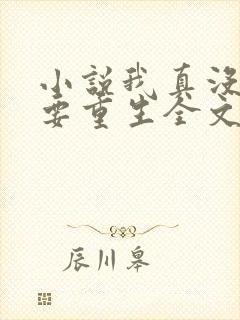 小说我真没
要重生全文
辰川皋